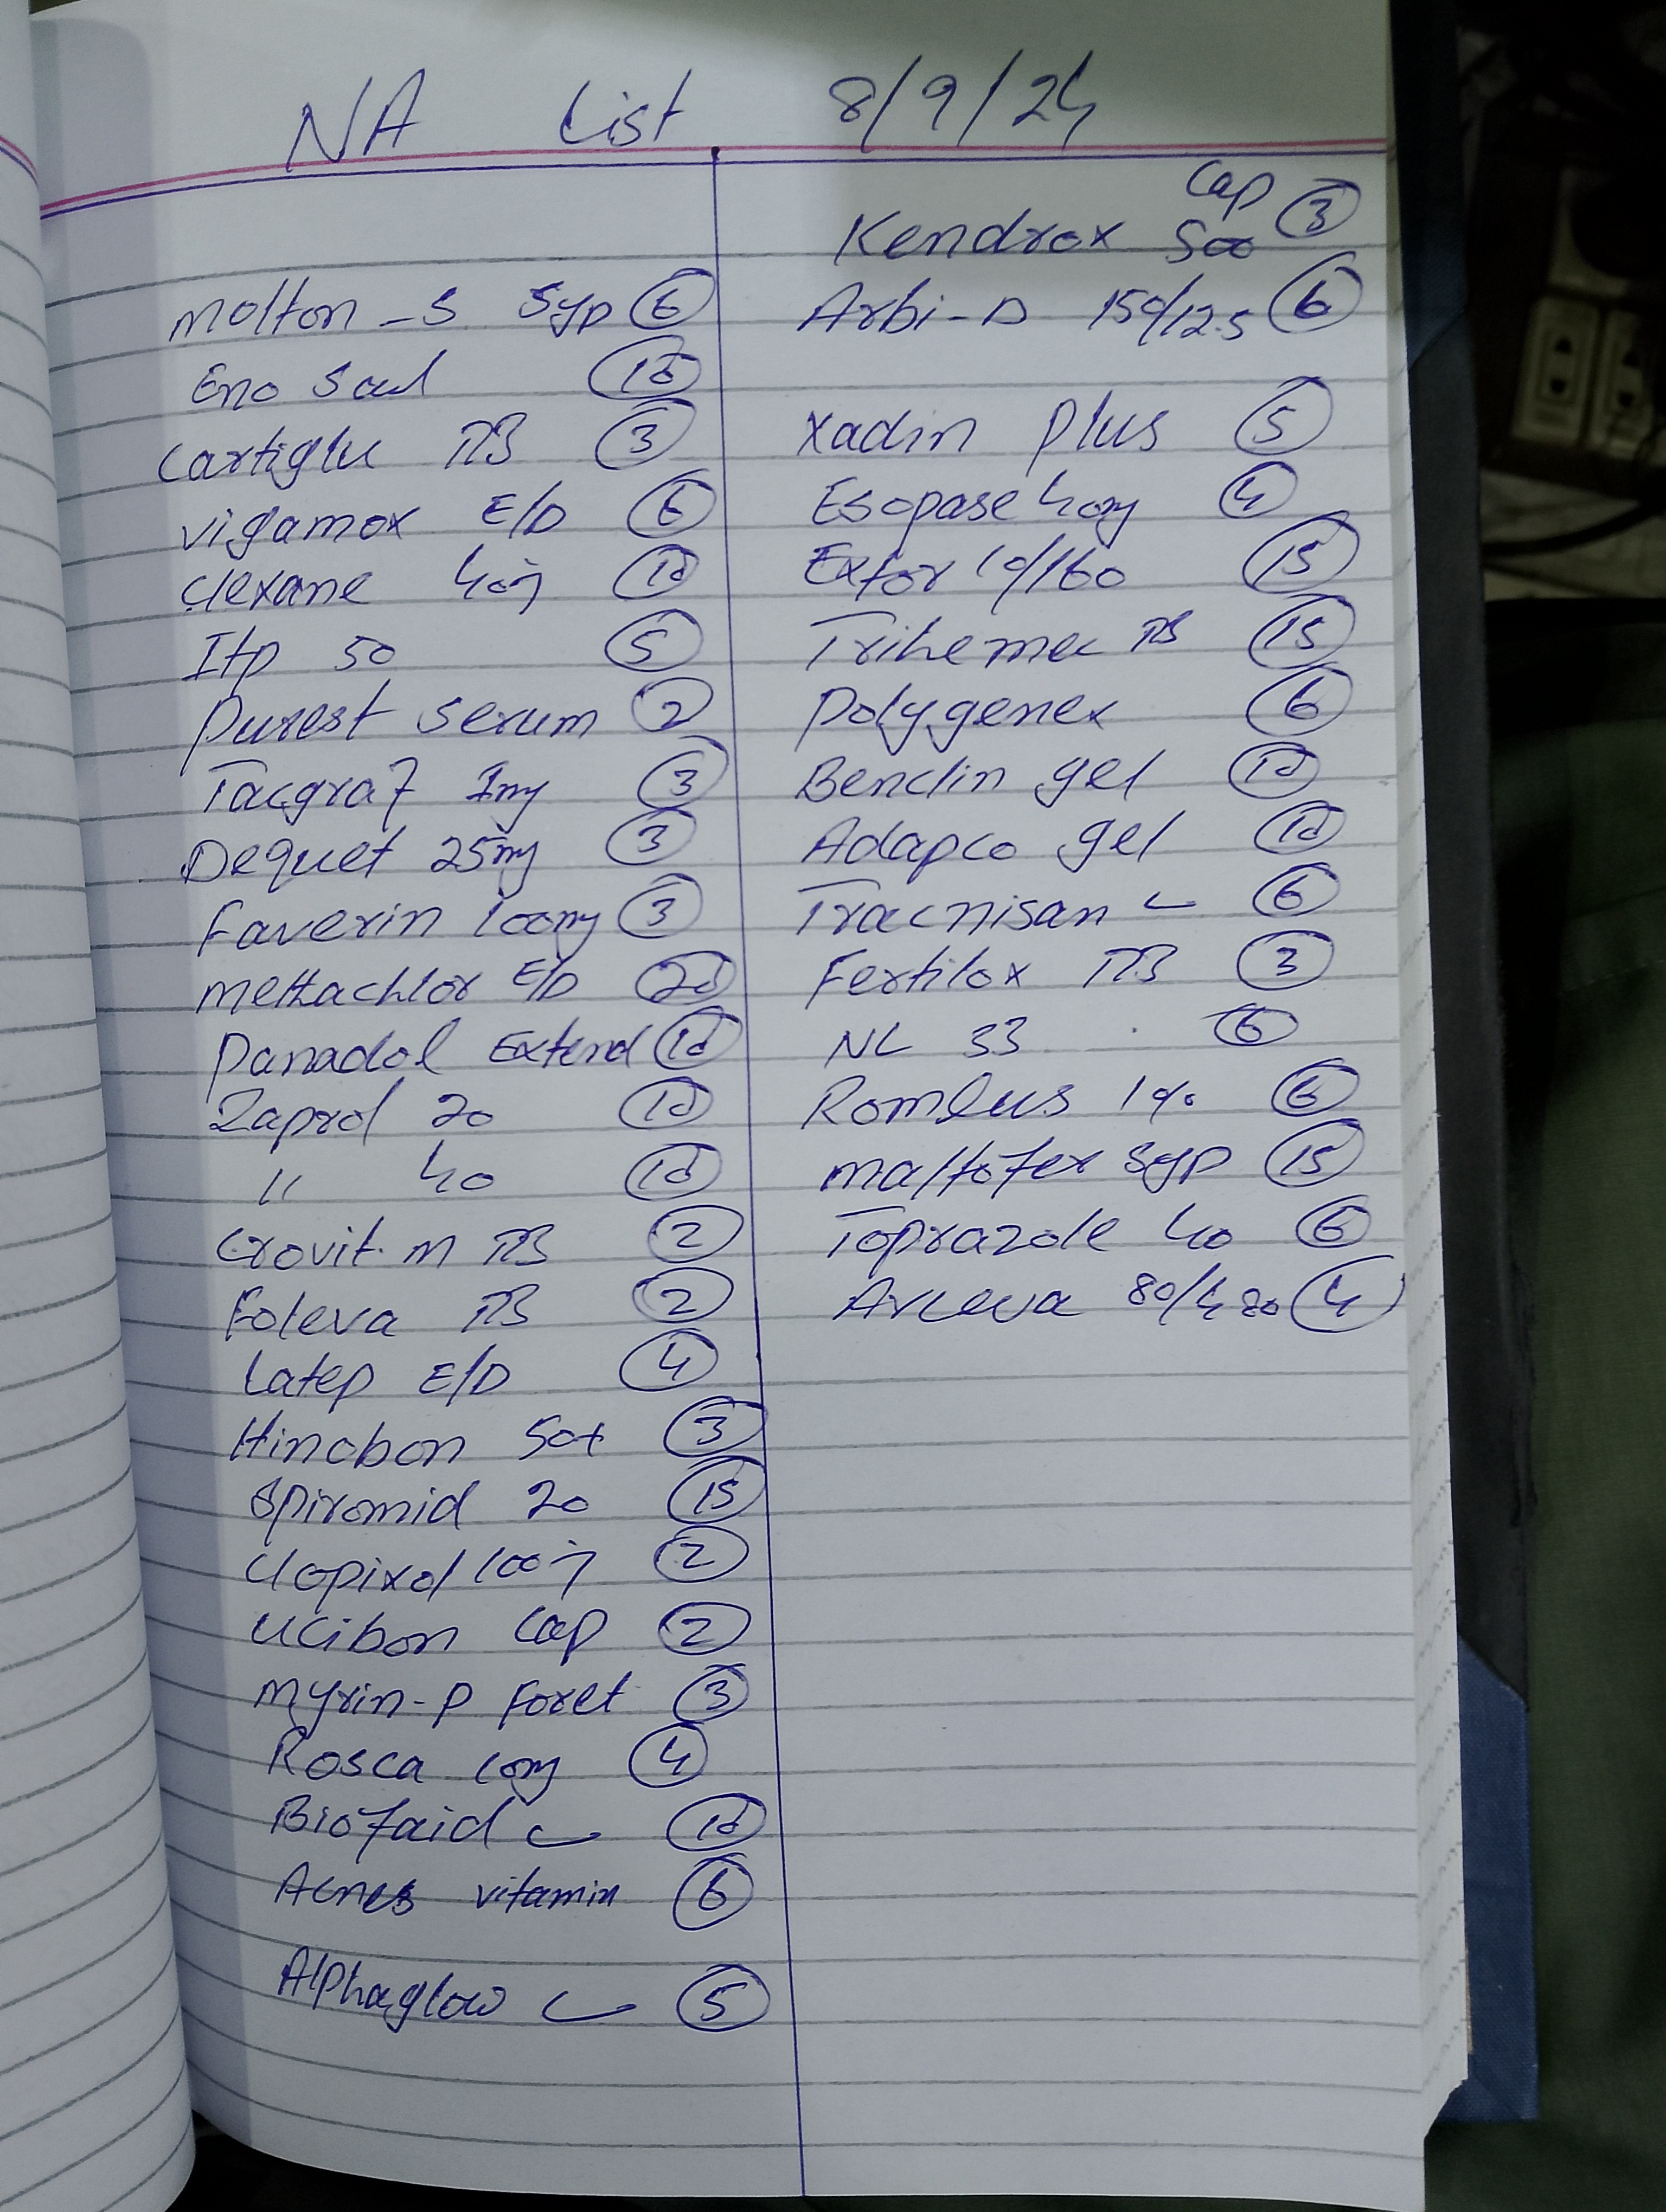 NA List 8/9/24
Molton-S Syp 6
Eno Saul 10
Cartiglu TB 3
Vigamox E/D 6
Clexane 40mg 10
Itp 50 5
Purest Serum 2
Tacgraf 1mg 3
Dequet 25mg 3
Faverin 100mg 3
Methachlor E/D 20
Panadol Extend 10
Zaprol 20 10
" 40 10
Crovit-M TB 2
Foleva TB 2
Latep E/D 4
Hinobon Sat 3
Spiromid 20 15
Clopixol 100mg 2
Ucibon Cap 2
Myrin-P Foret 3
Rosca 10mg 4
Biofaid 10
Acnes vitamin 6
Alphaglow 5
Cap
Kendrox 500 3
Arbi-D 150/12.5 6
Xadin Plus 5
Esopase 40mg 4
Exfor 10/160 15
Trihemec TB 15
Polygenex 6
Benclin gel 10
Adapco gel 10
Tracnisan 6
Fertilox TB 3
NL 33 6
Romlus 1% 6
Maltofer Syp 15
Toprazole 40 6
Arceva 80/480 4